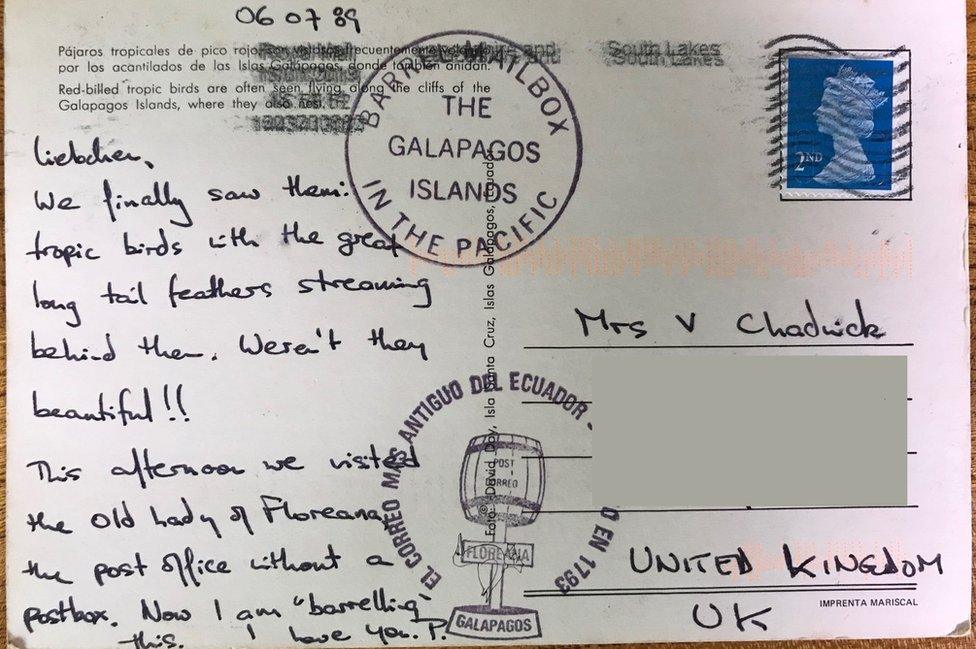 06 07 89
Pájaros tropicales de pico rojo son vistos frecuentemente volando
por los acantilados de las Islas Galápagos, donde también anidan.
Red-billed tropic birds are often seen flying along the cliffs of the
Galapagos Islands, where they also nest.
and South Lakes
South Lakes
BARREL MAILBOX
THE
GALAPAGOS
ISLANDS
IN THE PACIFIC
2ND
Liebchen,
We finally saw them:
tropic birds with the great
long tail feathers streaming
behind them. Weren't they
beautiful!!
This afternoon we visited
the old lady of Floreana,
the post office without a
postbox. Now I am "barrelling"
this. I have you. P.
Foto: © David Day, Isla Santa Cruz, Islas Galápagos, Ecuador
EL CORREO MAS ANTIGUO DEL ECUADOR -
O EN 1793
POST
CORREO
FLOREANA
GALAPAGOS
Mrs V Chadwick
UNITED KINGDOM
IMPRENTA MARISCAL
UK